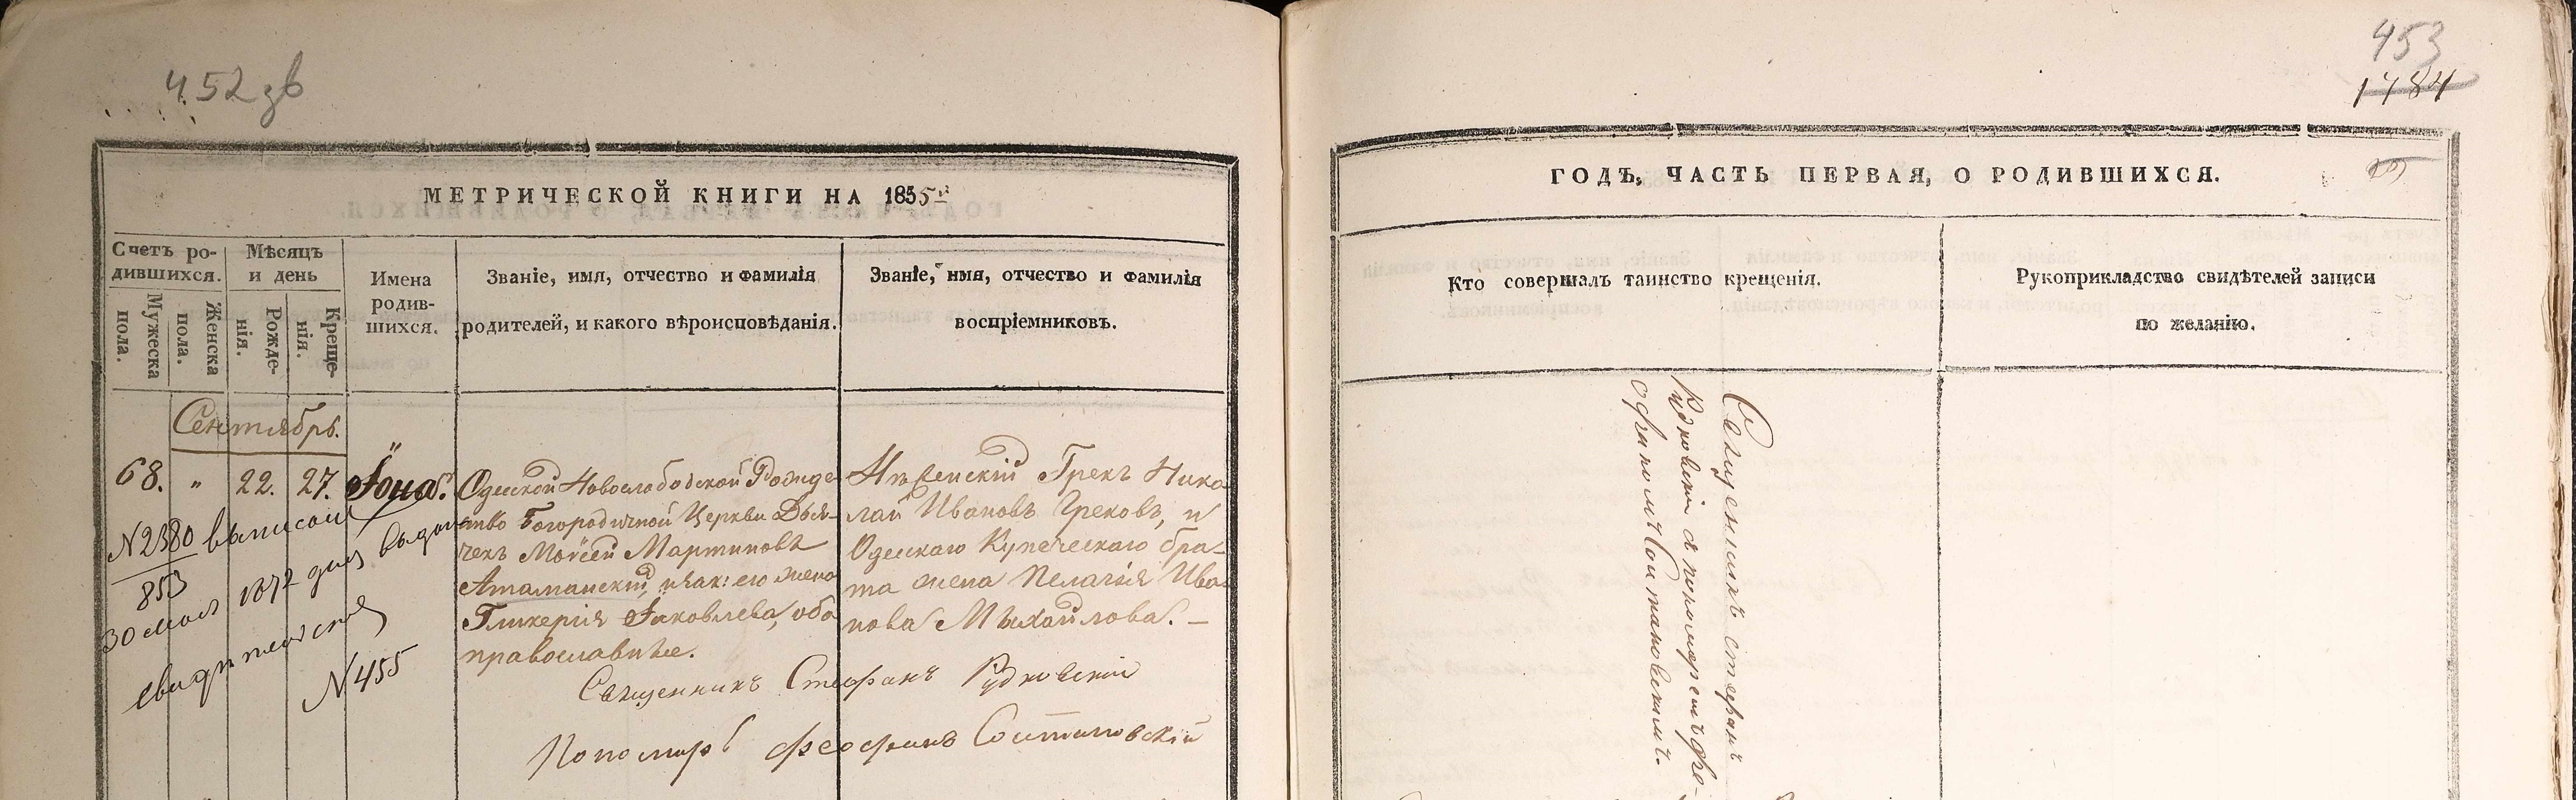 452 зв
МЕТРИЧЕСКОЙ КНИГИ НА 1855й
Счетъ ро-
дившихся.
Мѣсяцъ
и день
Мужеска
пола.
Женска
пола.
Рожде-
нія.
Креще-
нія.
Имена
родив-
шихся.
Званіе, имя, отчество и фамилія
родителей, и какого вѣроисповѣданія.
Званіе, имя, отчество и фамилія
воспріемниковъ.
Сентябрь.
68. " 22. 27. Іона.
Одесской Новослободской Рожде-
ство Богородичной Церкви Дья-
чекъ Моѵсей Мартиновъ
Атаманскій, и зак: его жена
Гликерія Яковлева, оба
православные.
Нѣженскій Грекъ Нико-
лай Ивановъ Грековъ, и
Одесскаго Купеческаго бра-
та жена Пелагія Ива-
нова Михайлова. –
N 2380
853
30 мая 1872 выдано
свидѣтельство
N 455
Священникъ Стефанъ Рудковскій
Пономарь Феофанъ
453
1484
ГОДЪ, ЧАСТЬ ПЕРВАЯ, О РОДИВШИХСЯ.
Кто совершалъ таинство крещенія.
Рукоприкладство свидѣтелей записи
по желанію.
Священникъ Стефанъ
Рудковскій съ пономаремъ Фео-
фаномъ